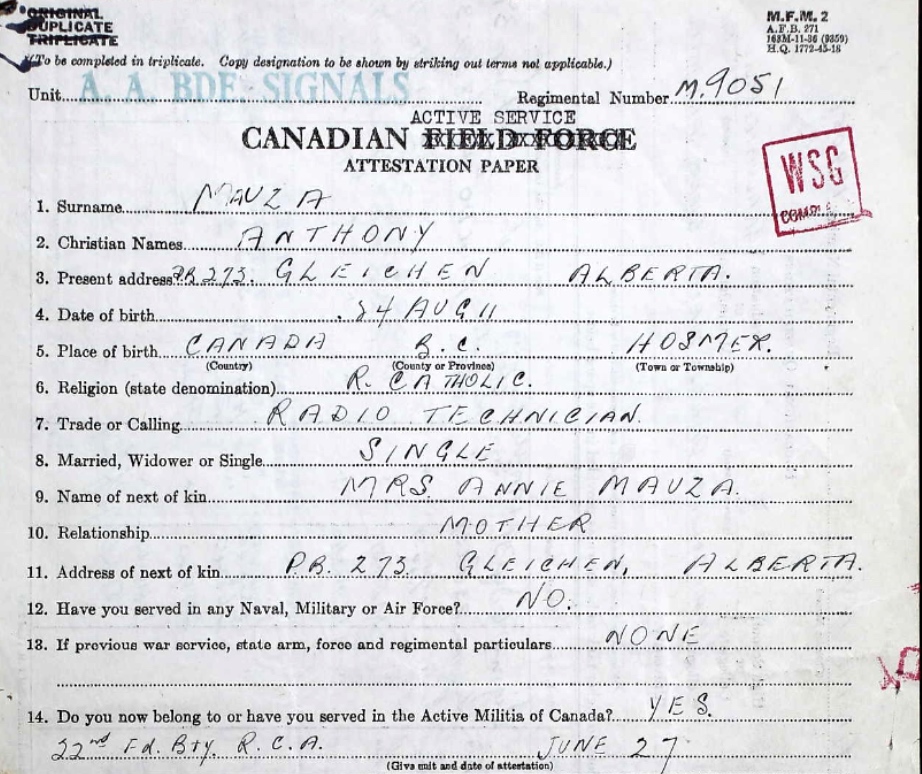 ORIGINAL
DUPLICATE
TRIPLICATE
M.F.M. 2
A.F.B. 271
H.Q. 1772-45-18
(To be completed in triplicate. Copy designation to be shown by striking out terms not applicable.)
Unit A. A. BDE. SIGNALS Regimental Number M.9051
ACTIVE SERVICE
CANADIAN FIELD FORCE
ATTESTATION PAPER
WSG
1. Surname MAUZA
2. Christian Names ANTHONY
3. Present address P.B. 273. GLEICHEN ALBERTA.
4. Date of birth 24 AUG 11
5. Place of birth CANADA B.C. HOSMER.
(Country) (County or Province) (Town or Township)
6. Religion (state denomination) R. CATHOLIC.
7. Trade or Calling RADIO TECHNICIAN.
8. Married, Widower or Single SINGLE
9. Name of next of kin MRS. ANNIE MAUZA.
10. Relationship MOTHER
11. Address of next of kin P.B. 273 GLEICHEN, ALBERTA.
12. Have you served in any Naval, Military or Air Force? NO.
13. If previous war service, state arm, force and regimental particulars NONE
14. Do you now belong to or have you served in the Active Militia of Canada? YES.
22nd Fd. Bty. R.C.A. JUNE 27
(Give unit and date of attestation)